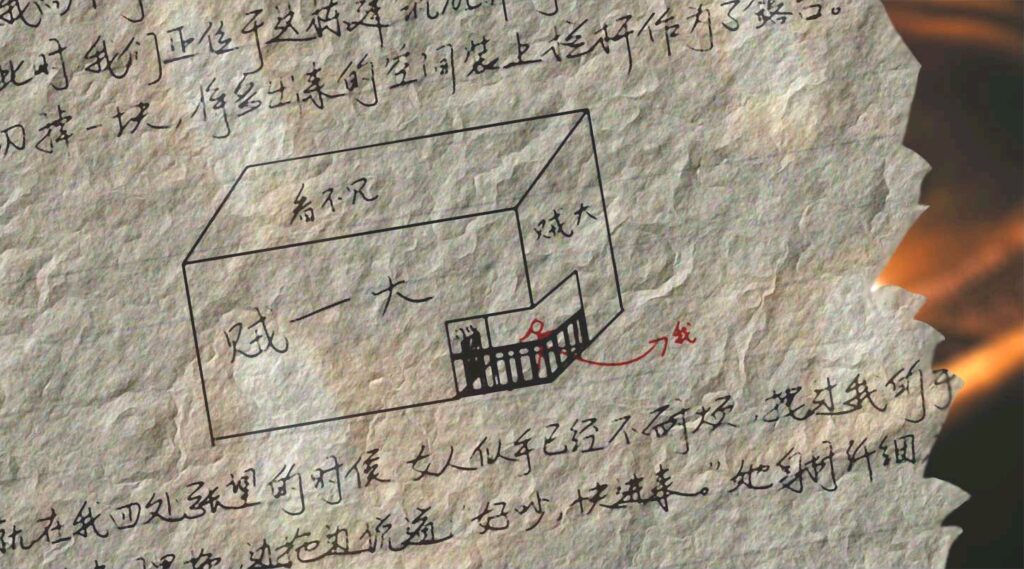 此时我们正位于这栋建筑
切掉一块，将多出来的空间装上栏杆作为了露台。
看不见
贼大
贼一大
我
就在我四处张望的时候 女人似乎已经不耐烦，拽过我的手
边拖边说道 好吵，快进来。”她身材纤细